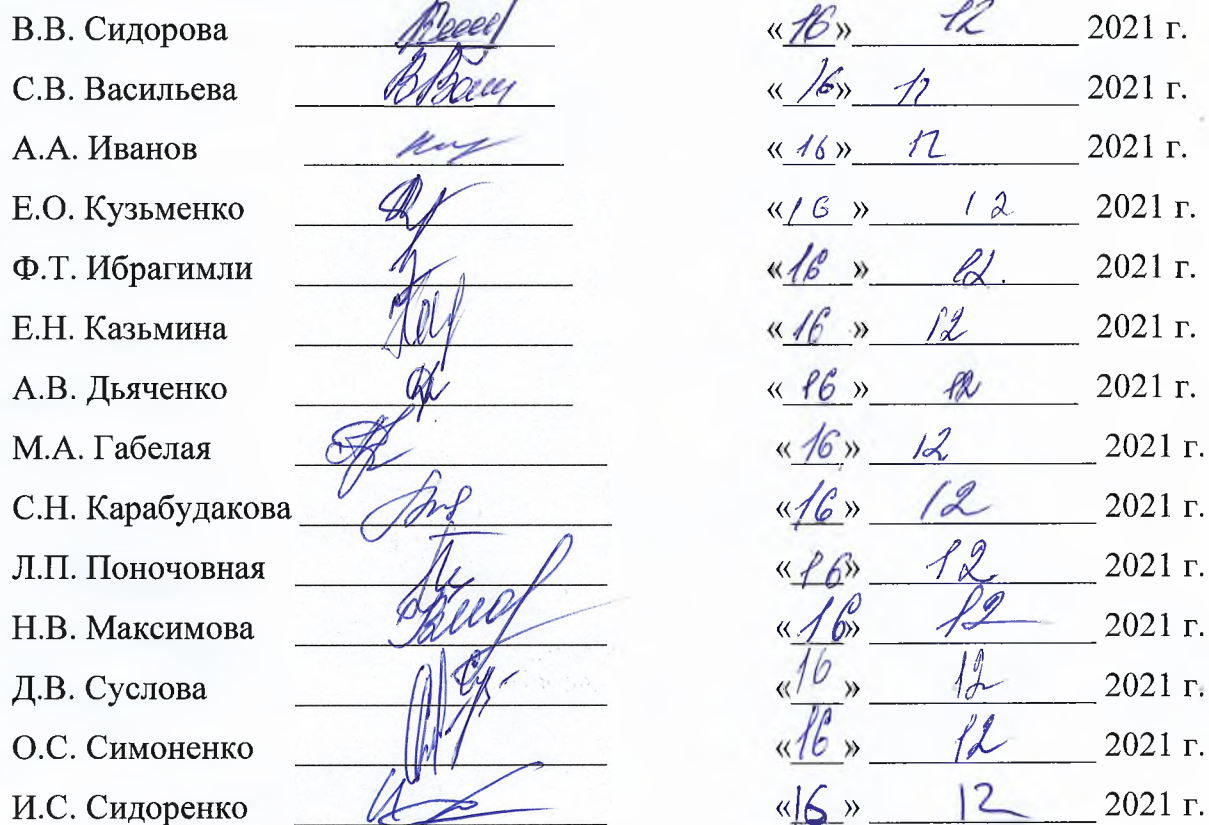 В.В. Сидорова «16» 12 2021 г.
С.В. Васильева «16» 12 2021 г.
А.А. Иванов «16» 12 2021 г.
Е.О. Кузьменко «16» 12 2021 г.
Ф.Т. Ибрагимли «16» 12. 2021 г.
Е.Н. Казьмина «16» 12 2021 г.
А.В. Дьяченко «16» 12 2021 г.
М.А. Габелая «16» 12 2021 г.
С.Н. Карабудакова «16» 12 2021 г.
Л.П. Поночовная «16» 12 2021 г.
Н.В. Максимова «16» 12 2021 г.
Д.В. Суслова «16» 12 2021 г.
О.С. Симоненко «16» 12 2021 г.
И.С. Сидоренко «16» 12 2021 г.